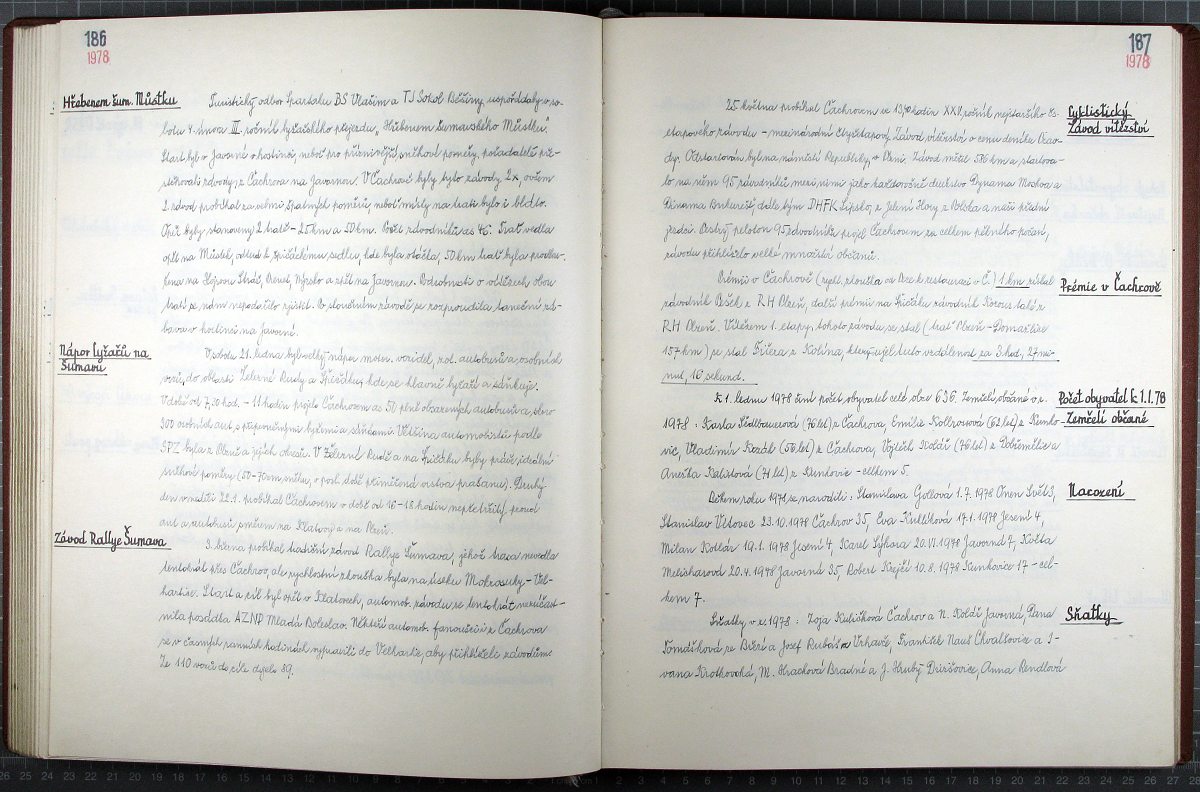 186
1978
Hřebenem šum. Můstku
Turistický odbor Spartaku BS Vlašim a TJ Sokol Běšiny uspořádaly v so-
botu 4. února III. ročník lyžařského přejezdu „Hřebenem šumavského Můstku."
Start byl v Javorné u hostinci, neboť pro příznivější sněhové poměry, pořadatelé pře-
stěhovali závody z Čachrova na Javornou. V Čachrově byly tyto závody 2x, ovšem
2. závod probíhal za velmi špatných poměrů, neboť místy na trati bylo i bláto.
Opět byly stanoveny 2 tratě - 25 km a 50 km. Počet závodníků as 45. Trať vedla
opět na Můstek, odtud k Špičáckému sedlu, kde byla otáčka, 50 km trať byla prodlou-
žena na Hojsovu Stráž, Brčál, a zpět na Javornou. Podrobnosti o vítězích obou
tratí se nám nepodařilo zjistit. Po skončení závodů se rozproudila taneční zá-
bava v hostinci na Javorné.
Nápor lyžařů na
Šumavu
V sobotu 21. ledna byl velký nápor motor. vozidel, vč. autobusů a osobních
vozů, do oblasti Železné Rudy a Špičáku, kde se hlavně lyžaři a sáňkuje.
V době od 7,30 hod. - 11 hodin projelo Čachrovem as 50 plně obsazených autobusů a skoro
300 osobních aut, s připevněnými lyžemi a sáňkami. Většina automobilistů podle
SPZ byla z Plzně a jejich okresů. V Železné Rudě a na Špičáku byly právě ideální
sněhové poměry (50-70 cm sněhu, v posl. době přiměřená vrstva prašanu). Druhý
den v neděli 22.1. probíhal Čachrovem v době od 16-18 hodin nepřetržitý proud
aut a autobusů směrem na Klatovy a na Plzeň.
Závod Rallye Šumava
1. března probíhal tradiční závod Rallye Šumava, jehož trasa nevedla
tentokrát přes Čachrov, ale rychlostní zkouška byla na úseku Mokrosuky - Vel-
hartice. Start a cíl byl opět v Klatovech, automob. závodu se tentokrát nezúčast-
nila posádka AZNP Mladá Boleslav. Někteří automob. fanoušci i z Čachrova
se v časných ranních hodinách vypravili do Velhartic, aby přihlíželi závodům.
Ze 110 vozů do cíle dojelo 89.
187
1978
Cyklistický
Závod vítězství
25. května probíhal Čachrovem ve 13,40 hodin XXX. ročník nejstaršího 8s-
etapového závodu - mezinárodní čtyřetapový Závod vítězství o cenu deníku Prav-
dy. Odstartován byl na náměstí Republiky v Plzni. Závod měřil 516 km a startova-
lo na něm 95 závodníků, mezi nimi jako každoročně družstvo Dynama Moskva a
Dinama Bukurešť, dále tým DHFK Lipsko, z Jelení Hory z Polska a naši přední
jezdci. Pestrý peloton 95 závodníků projel Čachrovem za celkem pěkného počasí,
závodu přihlíželo velké množství občanů.
Prémie v Čachrově
Prémii v Čachrově (rychl. zkouška od Drc k restauraci v Č.) 1 km získal
závodník Pešek z RH Plzeň, další prémii na Špičáku závodník Korous také z
RH Plzeň. Vítězem 1. etapy tohoto závodu se stal (trať Plzeň - Domažlice
157 km) se stal Fričera z Kolína, který ujel tuto vzdálenost za 3 hod, 27 mi-
nut, 16 sekund.
Počet obyvatel k 1.1.78
Zemřelí občané
K 1. lednu 1978 činí počet obyvatel celé obce 636. Zemřelí občané v r.
1978: Karla Sedlbauerová (76 let) z Čachrova, Emílie Kollrosová (62 let) z Kunko-
vic, Vladimír Kozák (56 let) z Čachrova, Vojtěch Kolář (76 let) z Dobřemilic a
Anežka Kalistová (71 let) z Kunkovic - celkem 5.
Narození
Během roku 1978 se narodili: Stanislava Gollová 1.7.1978 Onen Svět 3,
Stanislav Vltovec 23.10.1978 Čachrov 35, Eva Kuklíková 17.1.1978 Jesení 4,
Milan Kotlár 19.1.1978 Jesení 4, Karel Sýkora 20.VI.1978 Javorná 7, Květa
Melicharová 20.4.1978 Javorná 35, Robert Krejčí 10.8.1978 Kunkovice 17 - cel-
kem 7.
Sňatky
Sňatky v r. 1978: Zoja Kulíšková Čachrov a N. Kolář Javorná, Dana
Tomášková ze Bůší a Josef Rubáš z Vrhavče, František Nauš Chvalšovice a I-
vana Krotkovská, M. Hrachová Bradné a J. Hrubý Divišovice, Anna Rendlová